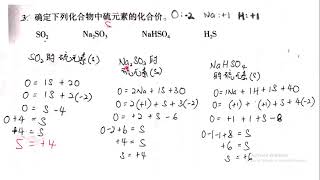 3. 确定下列化合物中硫元素的化合价。 O:-2 Na:+1 H:+1
S
SO₂ Na₂SO₃ NaHSO₄ H₂S
SO₂的硫元素(S)
0=1S+2O
0=1S+2(-2)
0=S-4
0+4=S
+4=S
S=+4
Na₂SO₃的
硫元素(S)
0=2Na+1S+3O
0=2(+1)+S+3(-2)
0=+2+S-6
0-2+6=S
+4=S
S=+4
NaHSO₄
的硫元素(S)
0=1Na+1H+1S+4O
0=(+1)+(+1)+S+4(-2)
0=+1+1+S-8
0-1-1+8=S
+6=S
S=+6